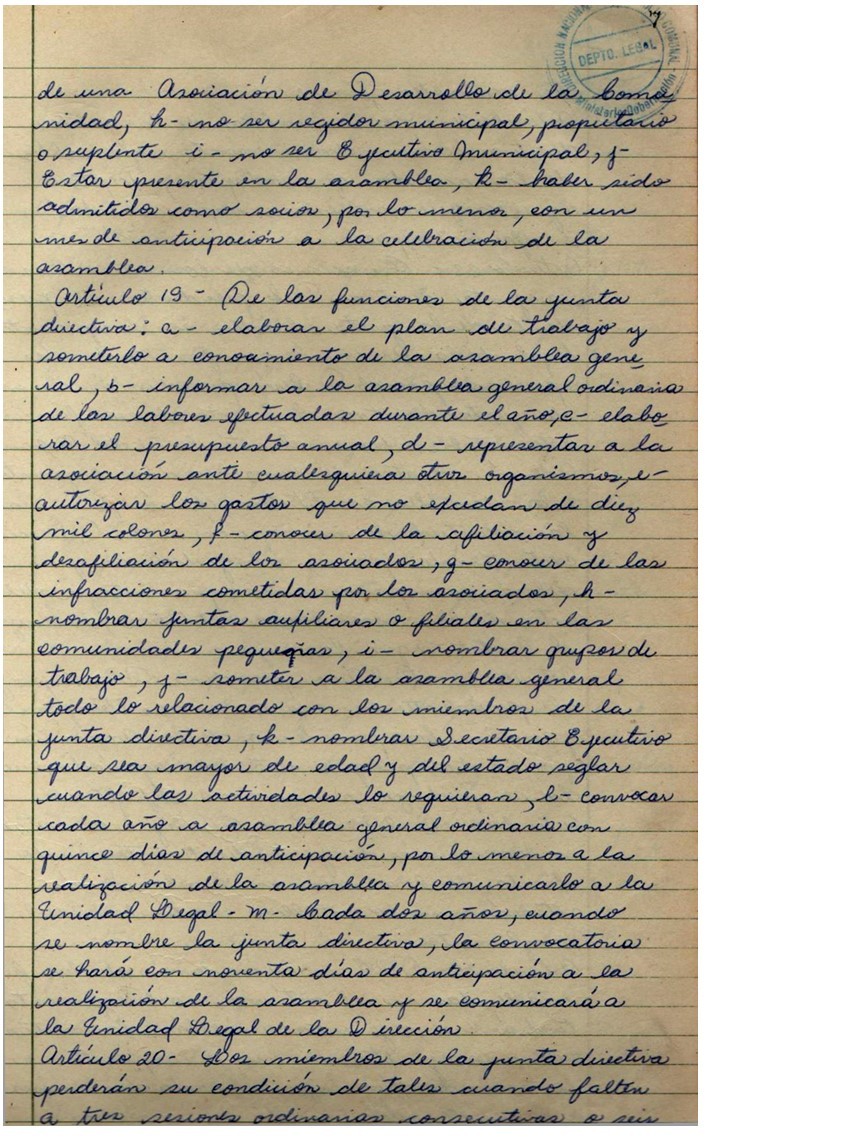 DIRECCION NACIONAL
COMUNAL
DEPTO. LEGAL
Ministerio Gobernación
de una Asociación de Desarrollo de la Comu
nidad, h- no ser regidor municipal, propietario
o suplente i- no ser Ejecutivo Municipal, j-
Estar presente en la asamblea, k- haber sido
admitidos como socios, por lo menos, con un
mes de anticipación a la celebración de la
asamblea.
Artículo 19 - De las funciones de la junta
directiva: a- elaborar el plan de trabajo y
someterlo a conocimiento de la asamblea gene
ral, b- informar a la asamblea general ordinaria
de las labores efectuadas durante el año, c- elabo
rar el presupuesto anual, d- representar a la
asociación ante cualesquiera otros organismos, e-
autorizar los gastos que no excedan de diez
mil colones, f- conocer de la afiliación y
desafiliación de los asociados, g- conocer de las
infracciones cometidas por los asociados, h-
nombrar juntas auxiliares o filiales en las
comunidades pequeñas, i- nombrar grupos de
trabajo, j- someter a la asamblea general
todo lo relacionado con los miembros de la
junta directiva, k- nombrar Secretario Ejecutivo
que sea mayor de edad y del estado seglar
cuando las actividades lo requieran, l- convocar
cada año a asamblea general ordinaria con
quince días de anticipación, por lo menos a la
realización de la asamblea y comunicarlo a la
Unidad Legal - m- Cada dos años, cuando
se nombre la junta directiva, la convocatoria
se hará con noventa días de anticipación a la
realización de la asamblea y se comunicará a
la Unidad Legal de la Dirección.
Artículo 20- Los miembros de la junta directiva
perderán su condición de tales cuando falten
a tres sesiones ordinarias consecutivas o seis